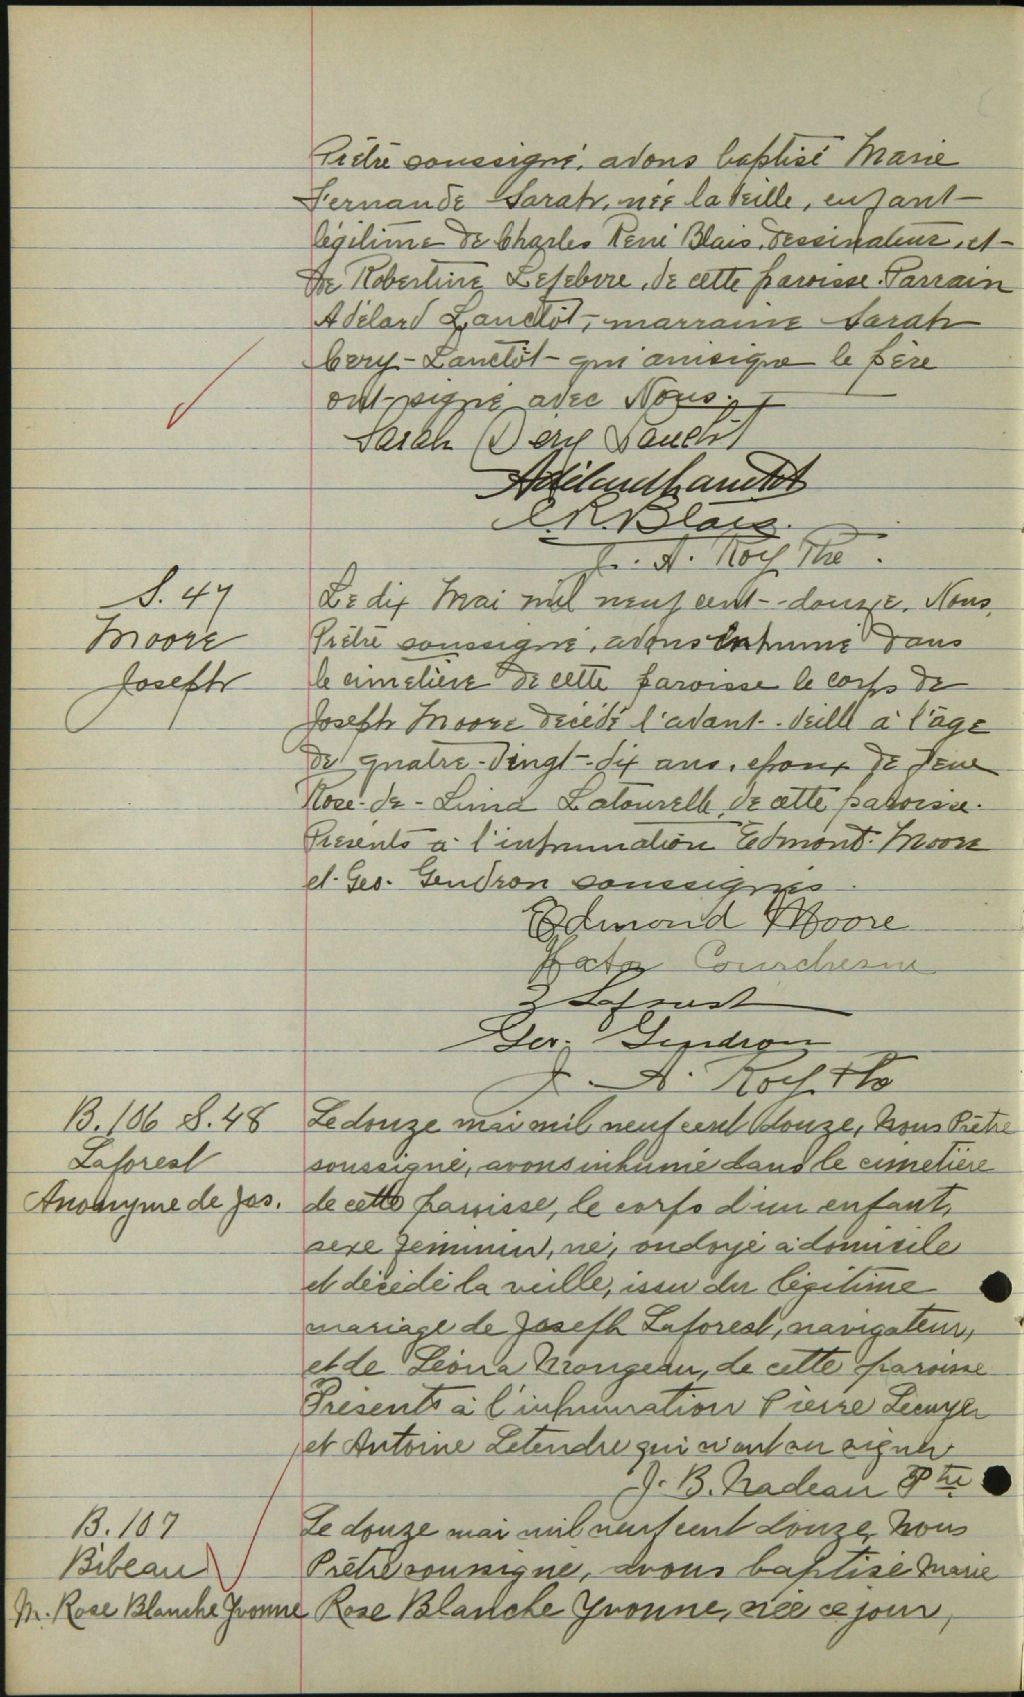 Prêtre soussigné, avons baptisé Marie
Fernande Sarah, née la veille, enfant
légitime de Charles René Blais, dessinateur, et
de Robertine Lefebvre, de cette paroisse. Parrain
Adélard Lanctôt, marraine Sarah
Cery-Lanctôt qui ainsique le père
ont signé avec Nous.
Sarah Dery Lanctôt
Adélard Lanctôt
C.R. Blais.
J. A. Roy Ptre.
S. 47
Moore
Joseph
Le dix Mai mil neuf cent-douze, Nous,
Prêtre soussigné, avons inhumé dans
le cimetière de cette paroisse le corps de
Joseph Moore décédé l'avant-veille à l'âge
de quatre-vingt-dix ans, époux de feue
Rose-de-Lima Latourelle, de cette paroisse.
Présents à l'inhumation Edmont Moore
et Geo. Gendron soussignés.
Edmond Moore
Courchesne
Laforest
Geo. Gendron
J. A. Roy Ptre
B. 106 S. 48
Laforest
Anonyme de Jos.
Le douze mai mil neuf cent douze, Nous Prêtre
soussigné, avons inhumé dans le cimetière
de cette paroisse, le corps d'un enfant,
sexe féminin, né, ondoyé à domicile
et décédé la veille, issu du légitime
mariage de Joseph Laforest, navigateur,
et de Léona Mongeau, de cette paroisse
Présents à l'inhumation Pierre Lecuyer
et Antoine Letendre qui n'ont su signer.
J. B. Nadeau Ptre
B. 107
Bibeau
M. Rose Blanche Yvonne
Le douze mai mil neuf cent douze, Nous
Prêtre soussigné, avons baptisé Marie
Rose Blanche Yvonne, née ce jour,